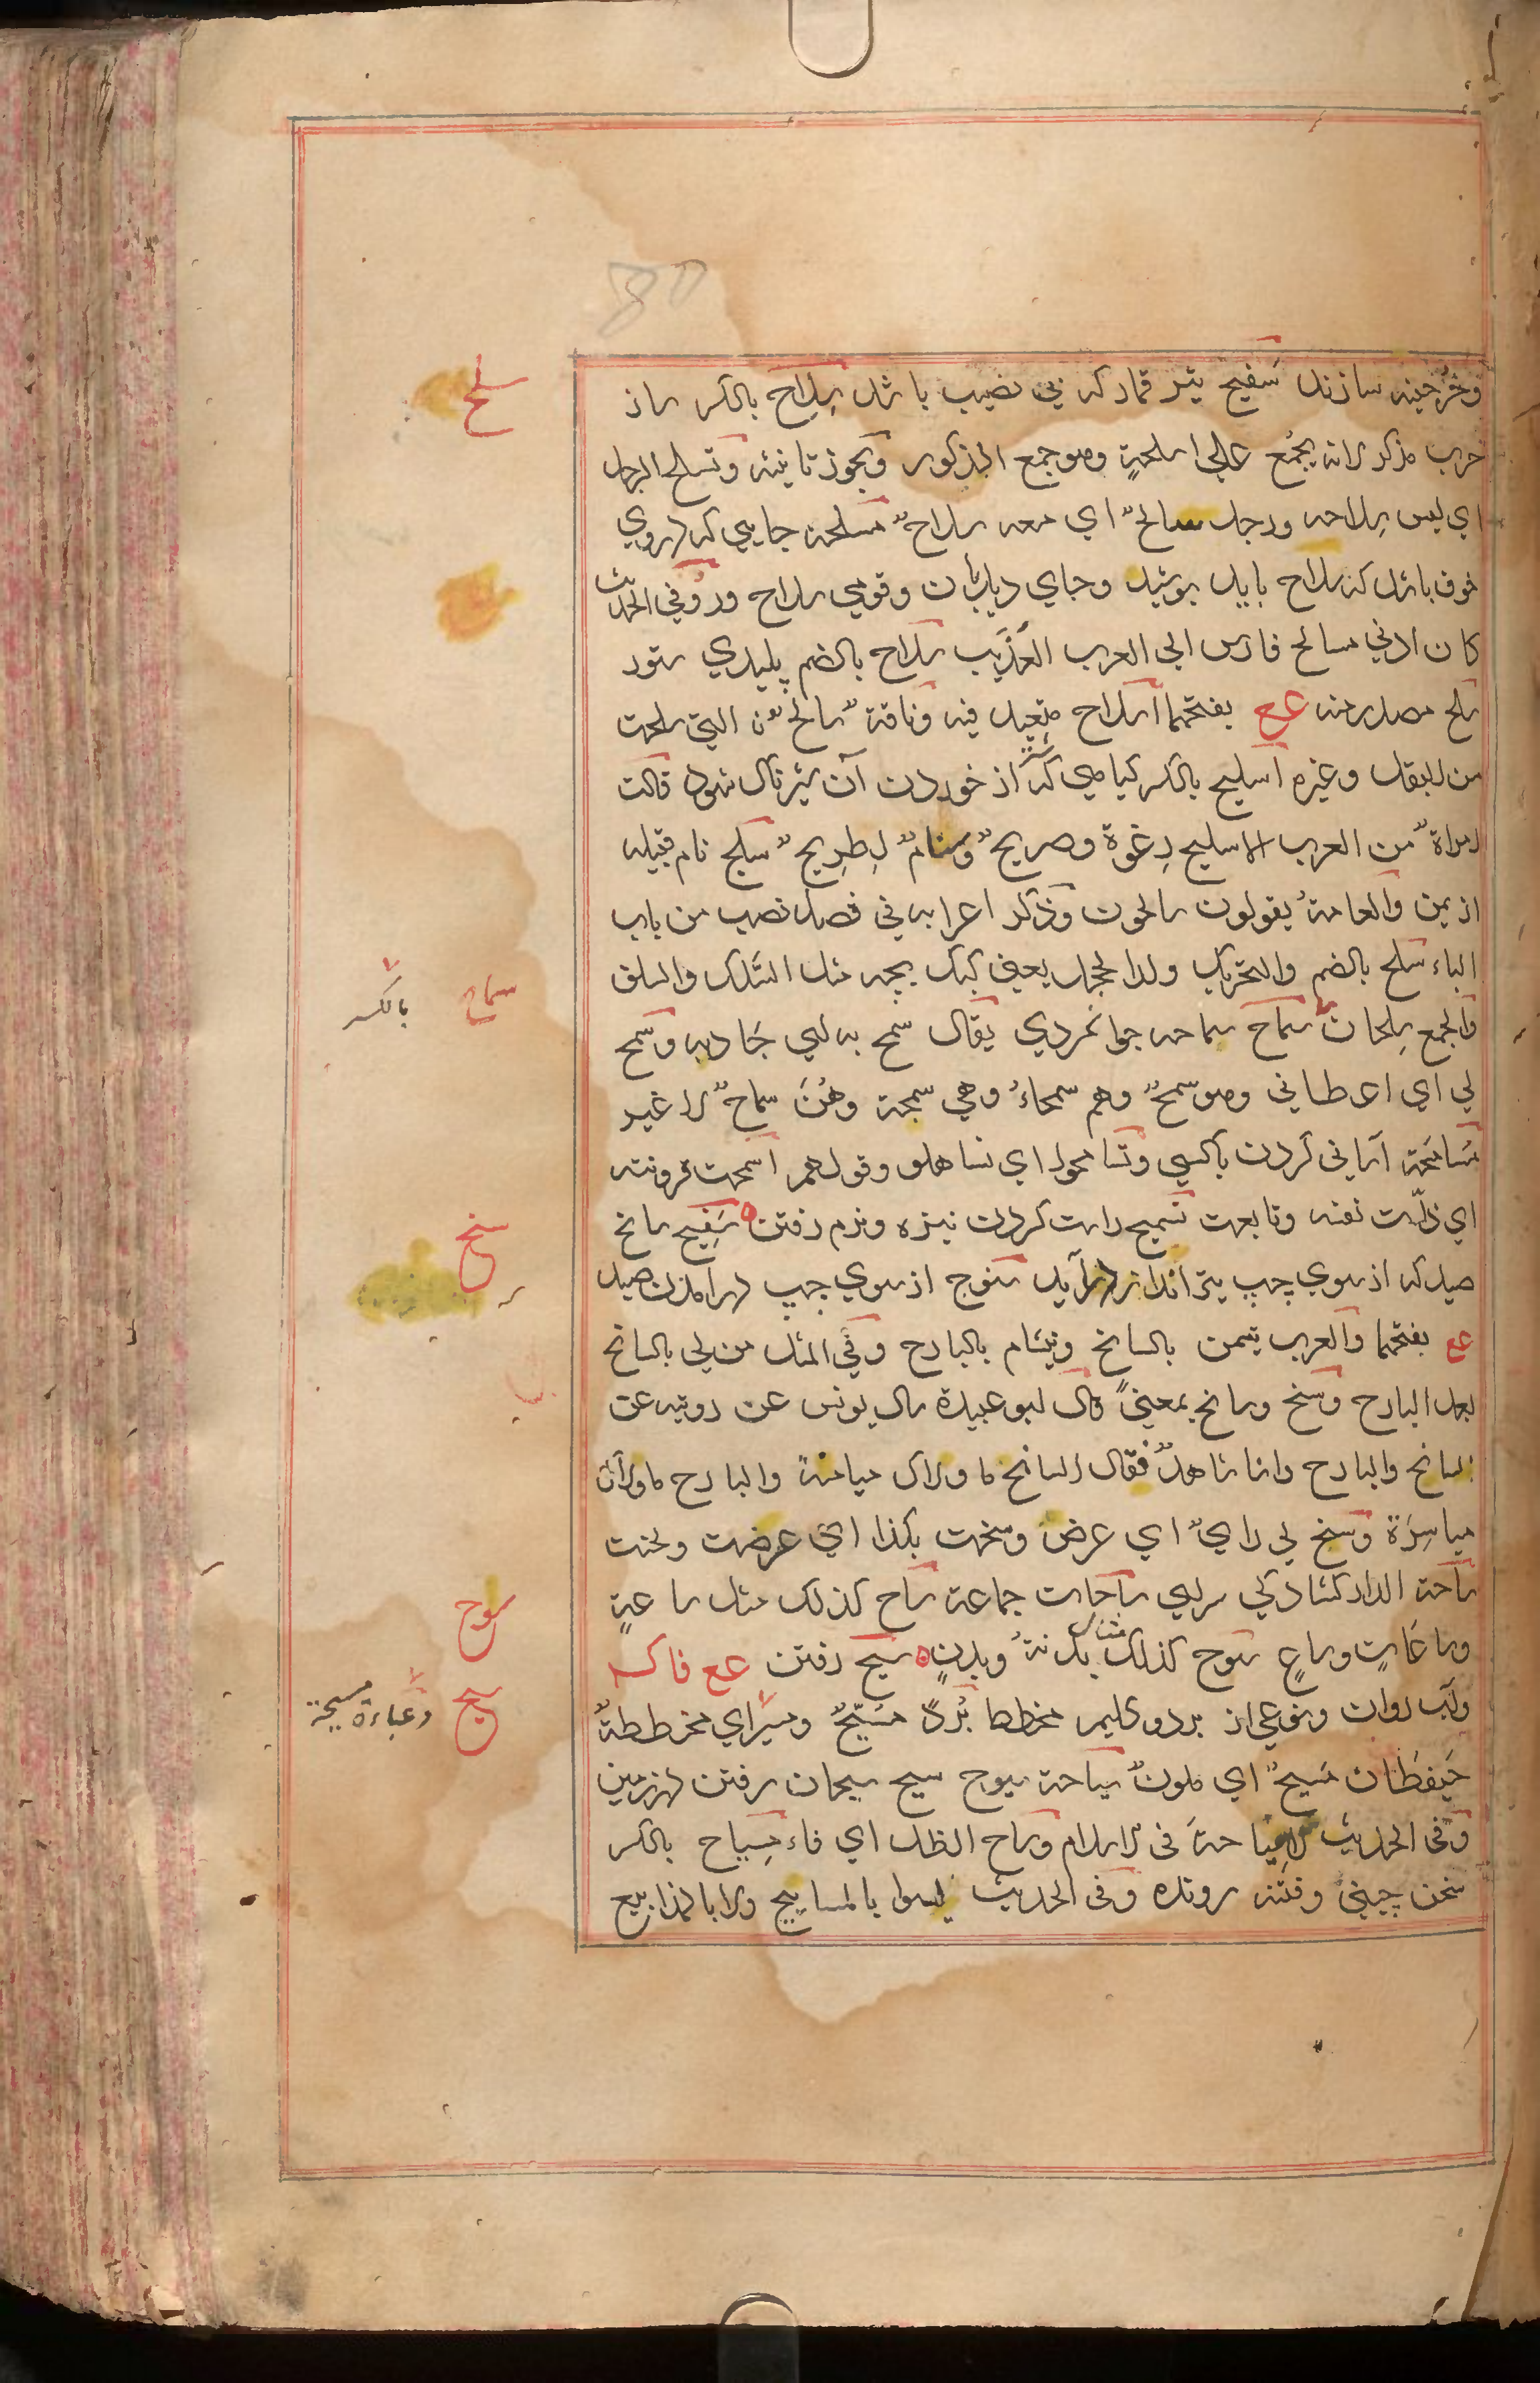 وخرجينه سازند سفيح تير قمار كه بي نصيب باشد سِلاح بالكسر ساز
حرب مذكر لانه يجمع علي اسلحةٍ وهو جمع المذكور ويجوز تانيثه وتسلح الرجل
اي لبس سلاحه ورجل سالحٌ اي معه سلاحٌ مسلحة جايي كه دروي
خوف باشد كه سلاح بايد پوشيد وجاي ديدبان وقومي سلاح ور وفي الحديث
كان ادني مسالح فارس الي العرب العُذَيب سلاح بالضم پليدي ستور
سلح مصدر منه عع بفتحهما اسلاح متعد فيه وناقة سالحٌ من التي سلحت
من البقل وغيره اسليح بالكسر كياهي كه از خوردن آن شيرناك شود قالت
امراةٌ من العرب الاسليح رِغوة وصريحٌ وسنامٌ اِطريحٌ سليح نام قبيله
از يمن والعامةُ يقولون سالحون وذكر اعرابه في فصل نصب من باب
الباء سلح بالضم والتحريك ولد الحجل يعني كبك بچه مثل السلك والسلف
والجمع سِلحان سماح سماحه جوانمردي يقال سمح به لي جاد به وسمح
لي اي اعطاني وهو سمحٌ وهم سمحاءُ وهي سمحة وهُنَ سماحٌ لا غير
مسامحة آساني كردن باكسي وتسامحوا اي تساهلو وقولهم اسمحت قرونته
اي ذلّت نفسه وتابعت تسميح راست كردن نيزه ونرم رفتن سَنيح سانح
صيد كه از سوي چپ تيرانداز درآيد سنوح از سوي چپ درامدن صيد
عع بفتحهما والعرب تيمن بالسانح وتتشام بالبارح وفي المثل من لي بالسانح
بعد البارح وسنح وسانح بمعنيً قال ابو عبيدة سال يونس عن روبته عن
السانح والبارح وانا شاهدٌ فقال السانح ما ولاك ميامنهً والبارح ما ولاك
مياسِرَهُ وسنح لي رايٌ اي عرض وسنحت بكذا اي عرضت ولحنت
ساحة الدار كشادكي سراي ساحات جماعة ساح كذلك مثل ساعةٍ
وساعاتٍ وساعٍ سوح كذلك مثل بدنةُ وبدن سيح رفتن عع فا كسه
وآب روان ونوعي از برد وكليم مخطط بُردٌ مُسَيّحٌ ومسير اي مخططةُ
حَيقطان مسيحٌ اي ملونٌ سياحة سيوح سيح سيحان رفتن در زمين
وفي الحديث لاسياحةَ في الاسلام وساح الظل اي فاء مِسياح بالكسر
سخن چيني وفتنه رونده وفي الحديث ليسوا بالمساييح ولا بالمذاييع
سلح
سماح
بالكسر
سنح
سوح
سيح
وعباءة مسيحة